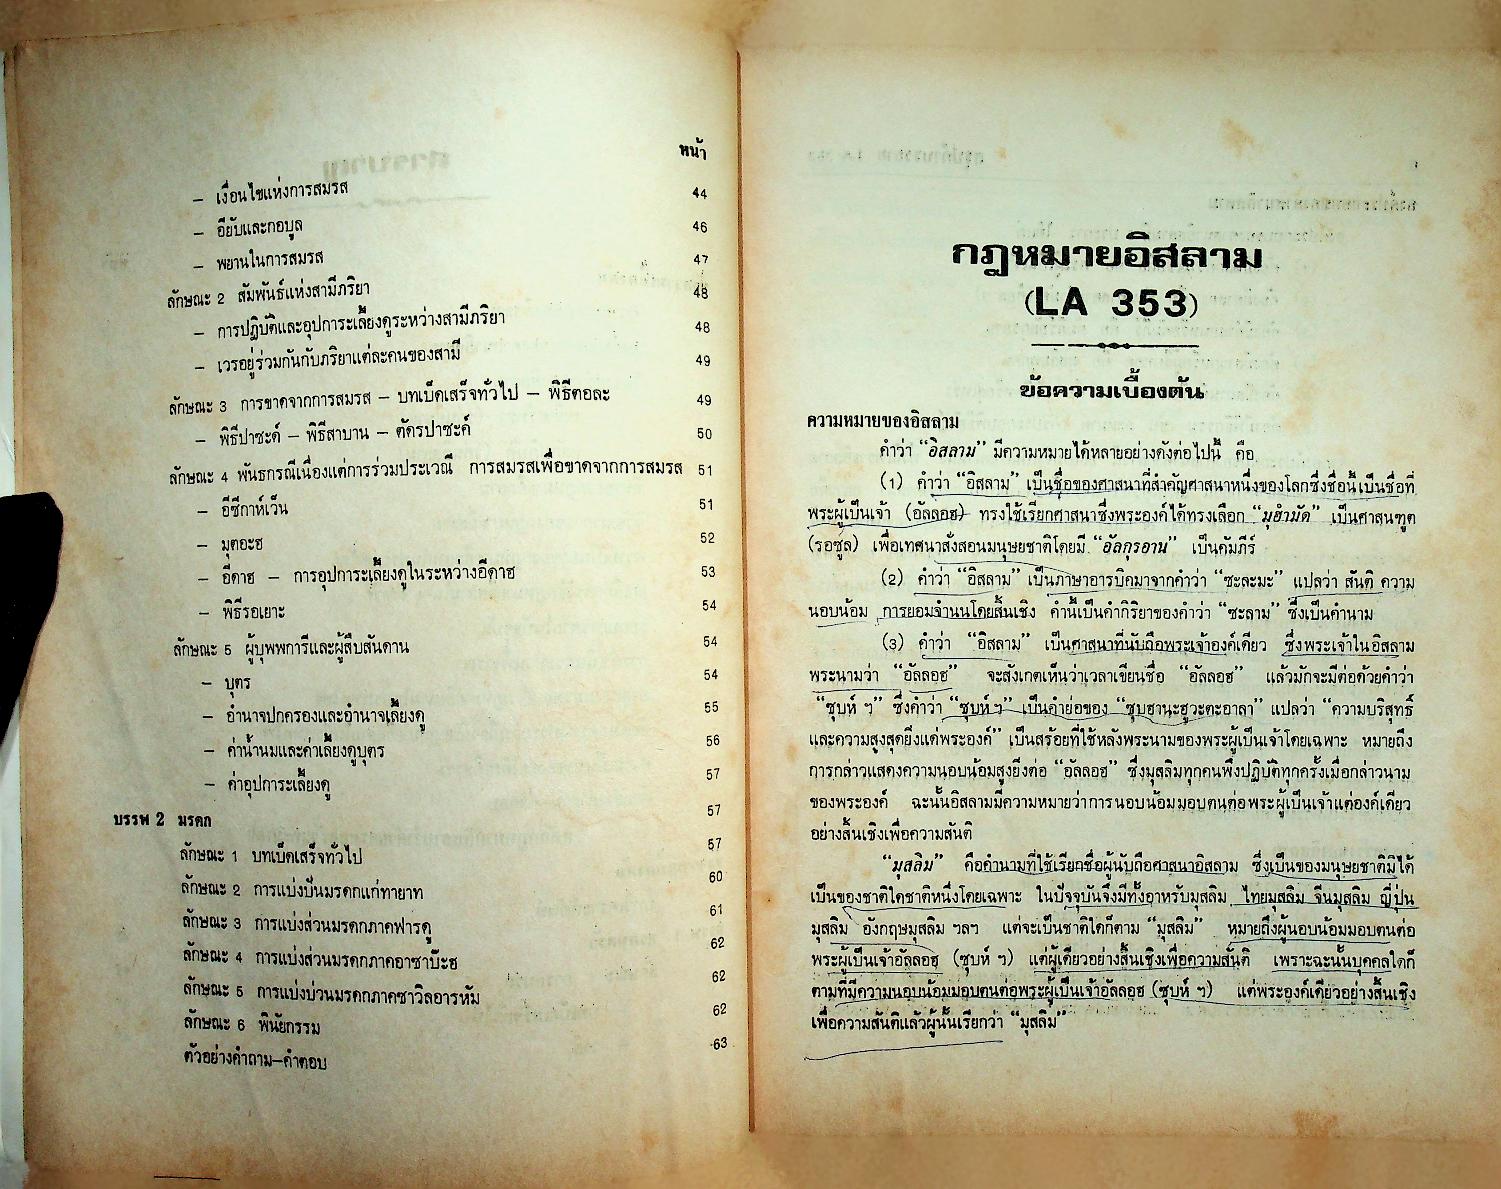 หน้า
– เงื่อนไขแห่งการสมรส 44
– อียับและกอบูล 46
– พยานในการสมรส 47
ลักษณะ 2 สัมพันธ์แห่งสามีภริยา 48
– การปฏิบัติและอุปการะเลี้ยงดูระหว่างสามีภริยา 48
– เวรอยู่ร่วมกันกับภริยาแต่ละคนของสามี 49
ลักษณะ 3 การขาดจากการสมรส – บทเบ็ดเสร็จทั่วไป – พิธีตอละ 49
– พิธีปาซะค์ – พิธีสาบาน – ตัครปาซะค์ 50
ลักษณะ 4 พันธกรณีเนื่องแต่การร่วมประเวณี การสมรสเพื่อขาดจากการสมรส 51
– อีซีกาห์เว็น 51
– มุตอะฮ 52
– อีดาฮ – การอุปการะเลี้ยงดูในระหว่างอีดาฮ 53
– พิธีรอเยาะ 54
ลักษณะ 5 ผู้บุพพการีและผู้สืบสันดาน 54
– บุตร 54
– อำนาจปกครองและอำนาจเลี้ยงดู 55
– ค่าน้ำนมและค่าเลี้ยงดูบุตร 56
– ค่าอุปการะเลี้ยงดู 57
บรรพ 2 มรดก 57
ลักษณะ 1 บทเบ็ดเสร็จทั่วไป 57
ลักษณะ 2 การแบ่งปันมรดกแก่ทายาท 60
ลักษณะ 3 การแบ่งส่วนมรดกภาคฟารดู 61
ลักษณะ 4 การแบ่งส่วนมรดกภาคอาซาบ๊ะฮ 62
ลักษณะ 5 การแบ่งบ่วนมรดกภาคซาวิลอารหัม 62
ลักษณะ 6 พินัยกรรม 62
ตัวอย่างคำถาม–คำตอบ 63
กฎหมายอิสลาม
(LA 353)
ข้อความเบื้องต้น
ความหมายของอิสลาม
คำว่า “อิสลาม” มีความหมายได้หลายอย่างดังต่อไปนี้ คือ
(1) คำว่า “อิสลาม” เป็นชื่อของศาสนาที่สำคัญศาสนาหนึ่งของโลกซึ่งชื่อนี้เป็นชื่อที่
พระผู้เป็นเจ้า (อัลลอฮ) ทรงใช้เรียกศาสนาซึ่งพระองค์ได้ทรงเลือก “มุฮำมัด” เป็นศาสนฑูต
(รอซูล) เพื่อเทศนาสั่งสอนมนุษยชาติโดยมี “อัลกุรอาน” เป็นคัมภีร์
(2) คำว่า “อิสลาม” เป็นภาษาอารบิคมาจากคำว่า “ซะละมะ” แปลว่า สันติ ความ
นอบน้อม การยอมจำนนโดยสิ้นเชิง คำนี้เป็นคำกิริยาของคำว่า “ซะลาม” ซึ่งเป็นคำนาม
(3) คำว่า “อิสลาม” เป็นศาสนาที่นับถือพระเจ้าองค์เดียว ซึ่งพระเจ้าในอิสลาม
พระนามว่า “อัลลอฮ” จะสังเกตเห็นว่าเวลาเขียนชื่อ “อัลลอฮ” แล้วมักจะมีต่อด้วยคำว่า
“ซุบห์ ฯ” ซึ่งคำว่า “ซุบห์ ฯ” เป็นคำย่อของ “ซุบฮานะฮูวะตะอาลา” แปลว่า “ความบริสุทธิ์
และความสูงสุดยิ่งแด่พระองค์” เป็นสร้อยที่ใช้หลังพระนามของพระผู้เป็นเจ้าโดยเฉพาะ หมายถึง
การกล่าวแสดงความนอบน้อมสูงยิ่งต่อ “อัลลอฮ” ซึ่งมุสลิมทุกคนพึงปฏิบัติทุกครั้งเมื่อกล่าวนาม
ของพระองค์ ฉะนั้นอิสลามมีความหมายว่าการนอบน้อมมอบตนต่อพระผู้เป็นเจ้าแต่องค์เดียว
อย่างสิ้นเชิงเพื่อความสันติ
“มุสลิม” คือคำนามที่ใช้เรียกชื่อผู้นับถือศาสนาอิสลาม ซึ่งเป็นของมนุษยชาติมิได้
เป็นของชาติใดชาติหนึ่งโดยเฉพาะ ในปัจจุบันจึงมีทั้งอาหรับมุสลิม ไทยมุสลิม จีนมุสลิม ญี่ปุ่น
มุสลิม อังกฤษมุสลิม ฯลฯ แต่จะเป็นชาติใดก็ตาม “มุสลิม” หมายถึงผู้นอบน้อมมอบตนต่อ
พระผู้เป็นเจ้าอัลลอฮ (ซุบห์ ฯ) แต่ผู้เดียวอย่างสิ้นเชิงเพื่อความสันติ เพราะฉะนั้นบุคคลใดก็
ตามที่มีความนอบน้อมมอบตนต่อพระผู้เป็นเจ้าอัลลอฮ (ซุบห์ ฯ) แต่พระองค์เดียวอย่างสิ้นเชิง
เพื่อความสันติแล้วผู้นั้นเรียกว่า “มุสลิม”